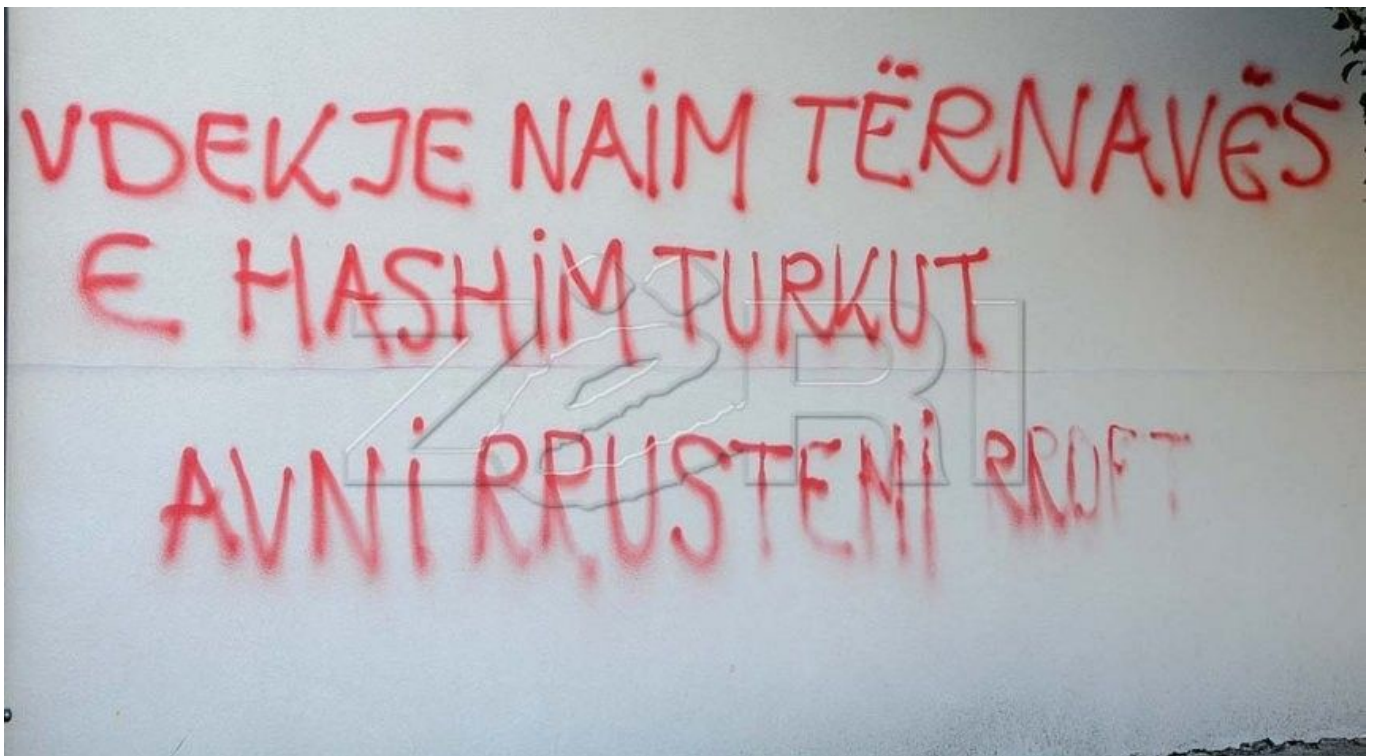 VDEKJE NAIM TËRNAVËS
E HASHIM TURKUT
ZëRI
AVNI RRUSTEMI RROFT